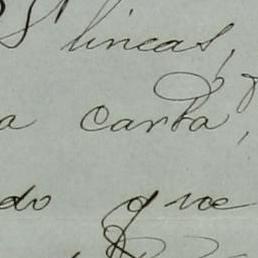 lineas,
a carta,
do que